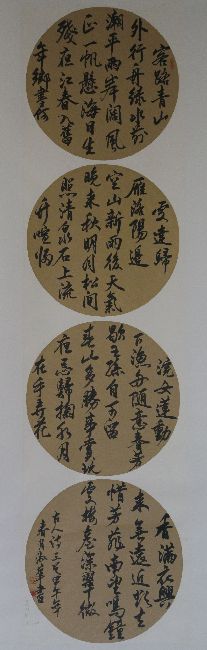 客路青山
外行舟綠水前
潮平两岸阔風
正一帆懸海日生
殘夜江春入舊
年鄉書何
處達歸
雁落陽邊
空山新雨後天氣
晚来秋明月松间
照清泉石上流
竹喧歸
浣女蓮動
下漁舟随意春芳
歇王孫自可留
春山多勝事賞玩
夜忘歸掬水月
在手弄花
香满衣興
来無遠近欲去
惜芳菲南望鳴鐘
處樓臺深翠微
古人诗三首甲午年
春月